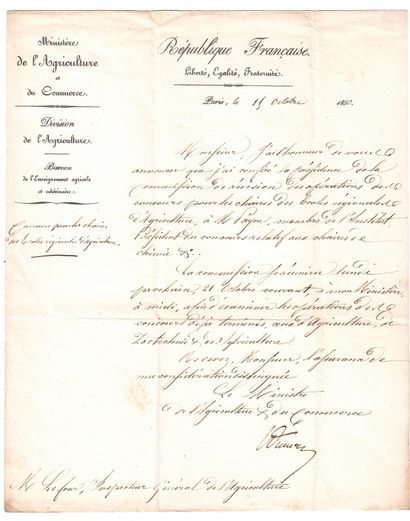 Ministère
de l'Agriculture
et
du Commerce.
Division
de l'Agriculture.
Bureau
de l'Enseignement agricole
et vétérinaire.
Concours pour les chaires
des Ecoles régionales d'Agriculture
République Française.
Liberté, Egalité, Fraternité.
Paris, le 15 octobre 1850.
Monsieur, J'ai l'honneur de vous
annoncer que j'ai confié la présidence de la
commission de révision des opérations des
concours pour les chaires des Ecoles régionales
d'Agriculture, à M. Payen, membre de l'Institut
Président du concours relatif aux chaires de
chimie &a.
La commission se réunira lundi
prochain 21 octobre courant, à mon Ministère,
à midi, afin d'examiner les opérations des
concours déjà terminés, ceux d'Agriculture, de
Zootechnie & de Sylviculture.
Recevez, Monsieur, l'assurance de
ma considération distinguée
Le Ministre
de l'Agriculture & du Commerce
M. Lefour, Inspecteur Général de l'Agriculture